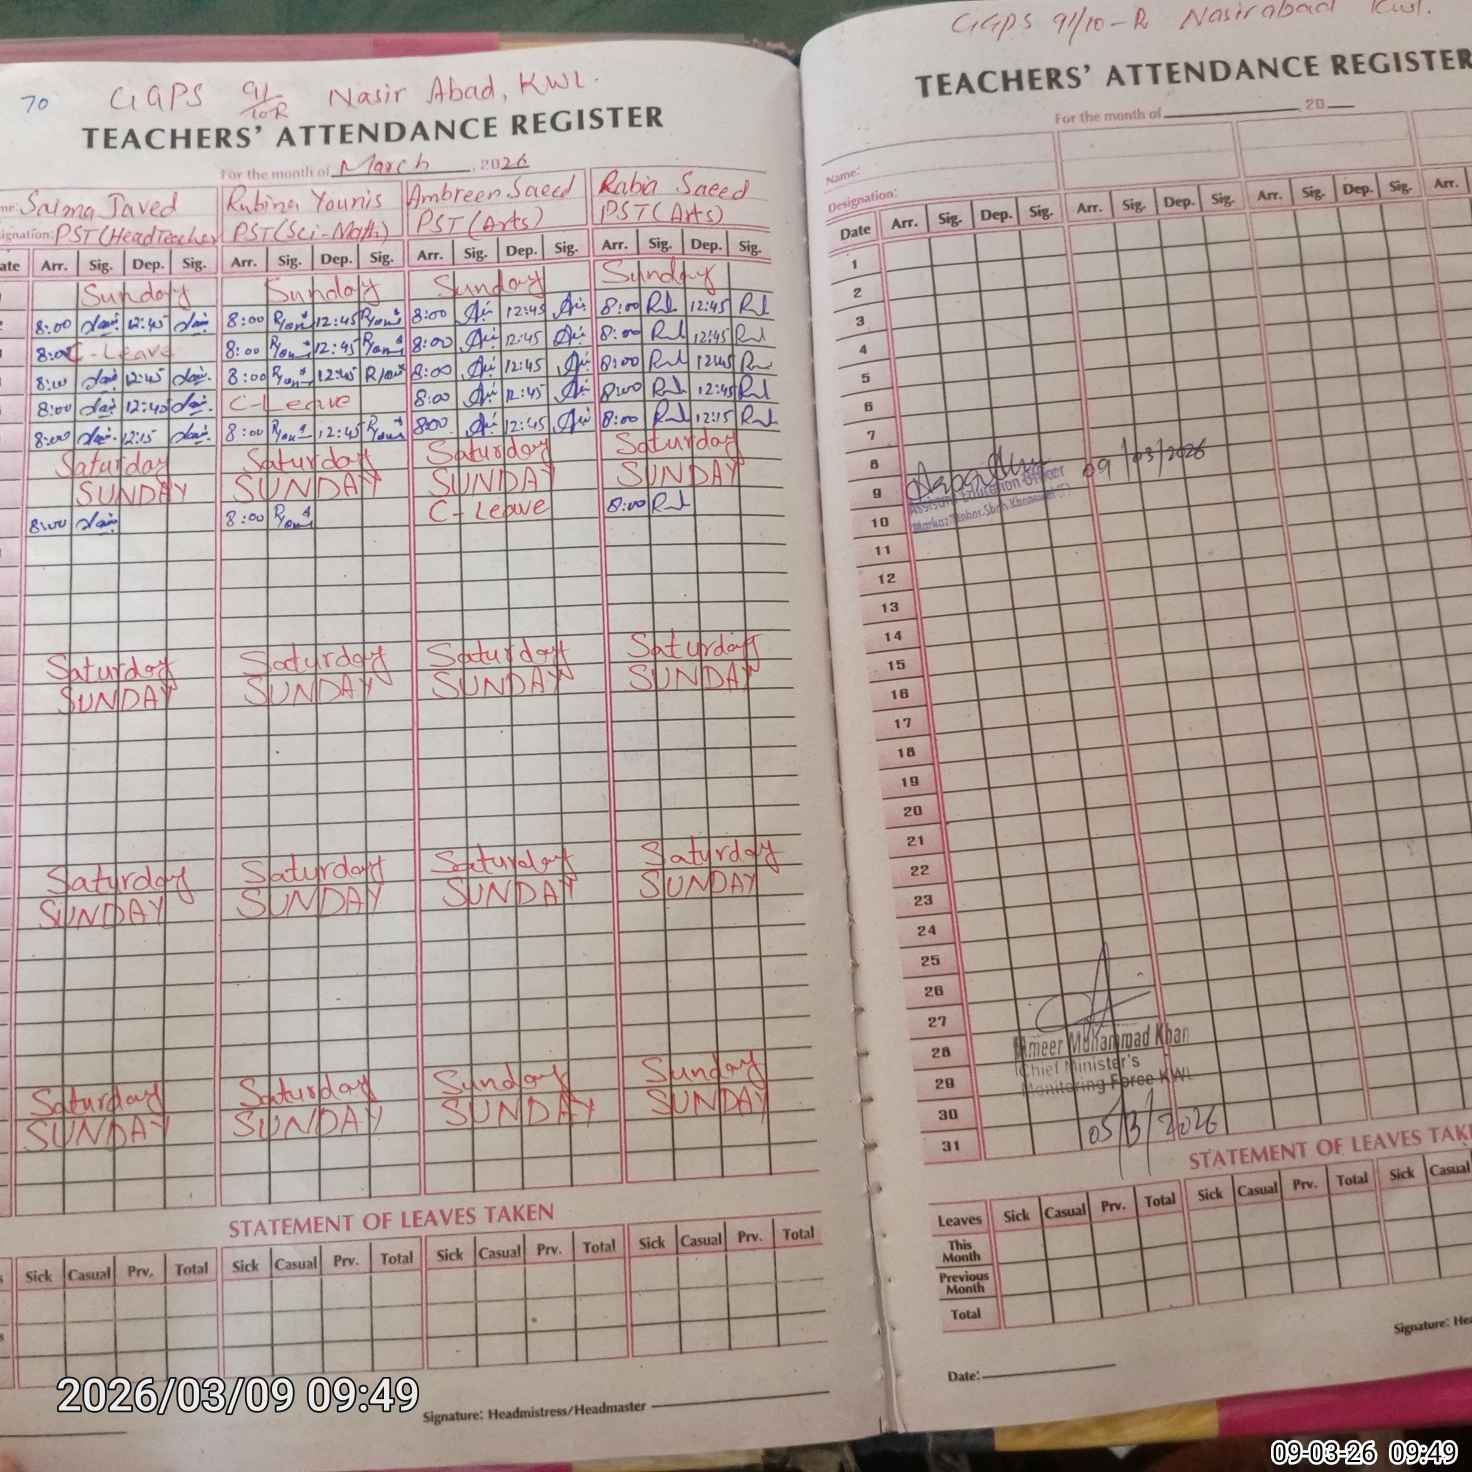 70
GGPS 91/10R Nasir Abad, KWL.
TEACHERS' ATTENDANCE REGISTER
For the month of March, 2026
Salma Javed Rubina Younis Ambreen Saeed Rabia Saeed
PST (HeadTeacher PST(Sci-Math) PST (Arts) PST (Arts)
Arr. Sig. Dep. Sig. Arr. Sig. Dep. Sig. Arr. Sig. Dep. Sig. Arr. Sig. Dep. Sig.
Sunday Sunday Sunday Sunday
8:00 12:45 8:00 12:45 8:00 12:45 8:00 12:45
8:00 C-Leave 8:00 12:45 8:00 12:45 8:00 12:45
8:00 12:45 8:00 12:45 8:00 12:45 8:00 12:45
8:00 12:45 C-Leave 8:00 12:45 8:00 12:45
8:00 12:15 8:00 12:45 8:00 12:45 8:00 12:15
Saturday Saturday Saturday Saturday
SUNDAY SUNDAY SUNDAY SUNDAY
8:00 8:00 C-Leave 8:00
Saturday Saturday Saturday Saturday
SUNDAY SUNDAY SUNDAY SUNDAY
Saturday Saturday Saturday Saturday
SUNDAY SUNDAY SUNDAY SUNDAY
Saturday Saturday Sunday Sunday
SUNDAY SUNDAY SUNDAY SUNDAY
STATEMENT OF LEAVES TAKEN
Sick Casual Prv. Total Sick Casual Prv. Total Sick Casual Prv. Total Sick Casual Prv. Total
Signature: Headmistress/Headmaster
2026/03/09 09:49
GGPS 91/10-R Nasirabad Kwl.
TEACHERS' ATTENDANCE REGISTER
For the month of 20
Name:
Designation:
Date Arr. Sig. Dep. Sig. Arr. Sig. Dep. Sig. Arr. Sig. Dep. Sig. Arr.
1
2
3
4
5
6
7
8
9
10
11
12
13
14
15
16
17
18
19
20
21
22
23
24
25
26
27
28
29
30
31
09/03/2026
Assistant Education Officer
Ameer Muhammad Khan
Chief Minister's
Monitoring Force KWL
05/3/2026
STATEMENT OF LEAVES TAK
Leaves Sick Casual Prv. Total Sick Casual Prv. Total Sick Casual
This Month
Previous Month
Total
Signature: He
Date:
09-03-26 09:49